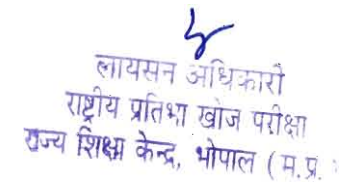 लायसन अधिकारी
राष्ट्रीय प्रतिभा खोज परीक्षा
राज्य शिक्षा केन्द्र, भोपाल (म.प्र.